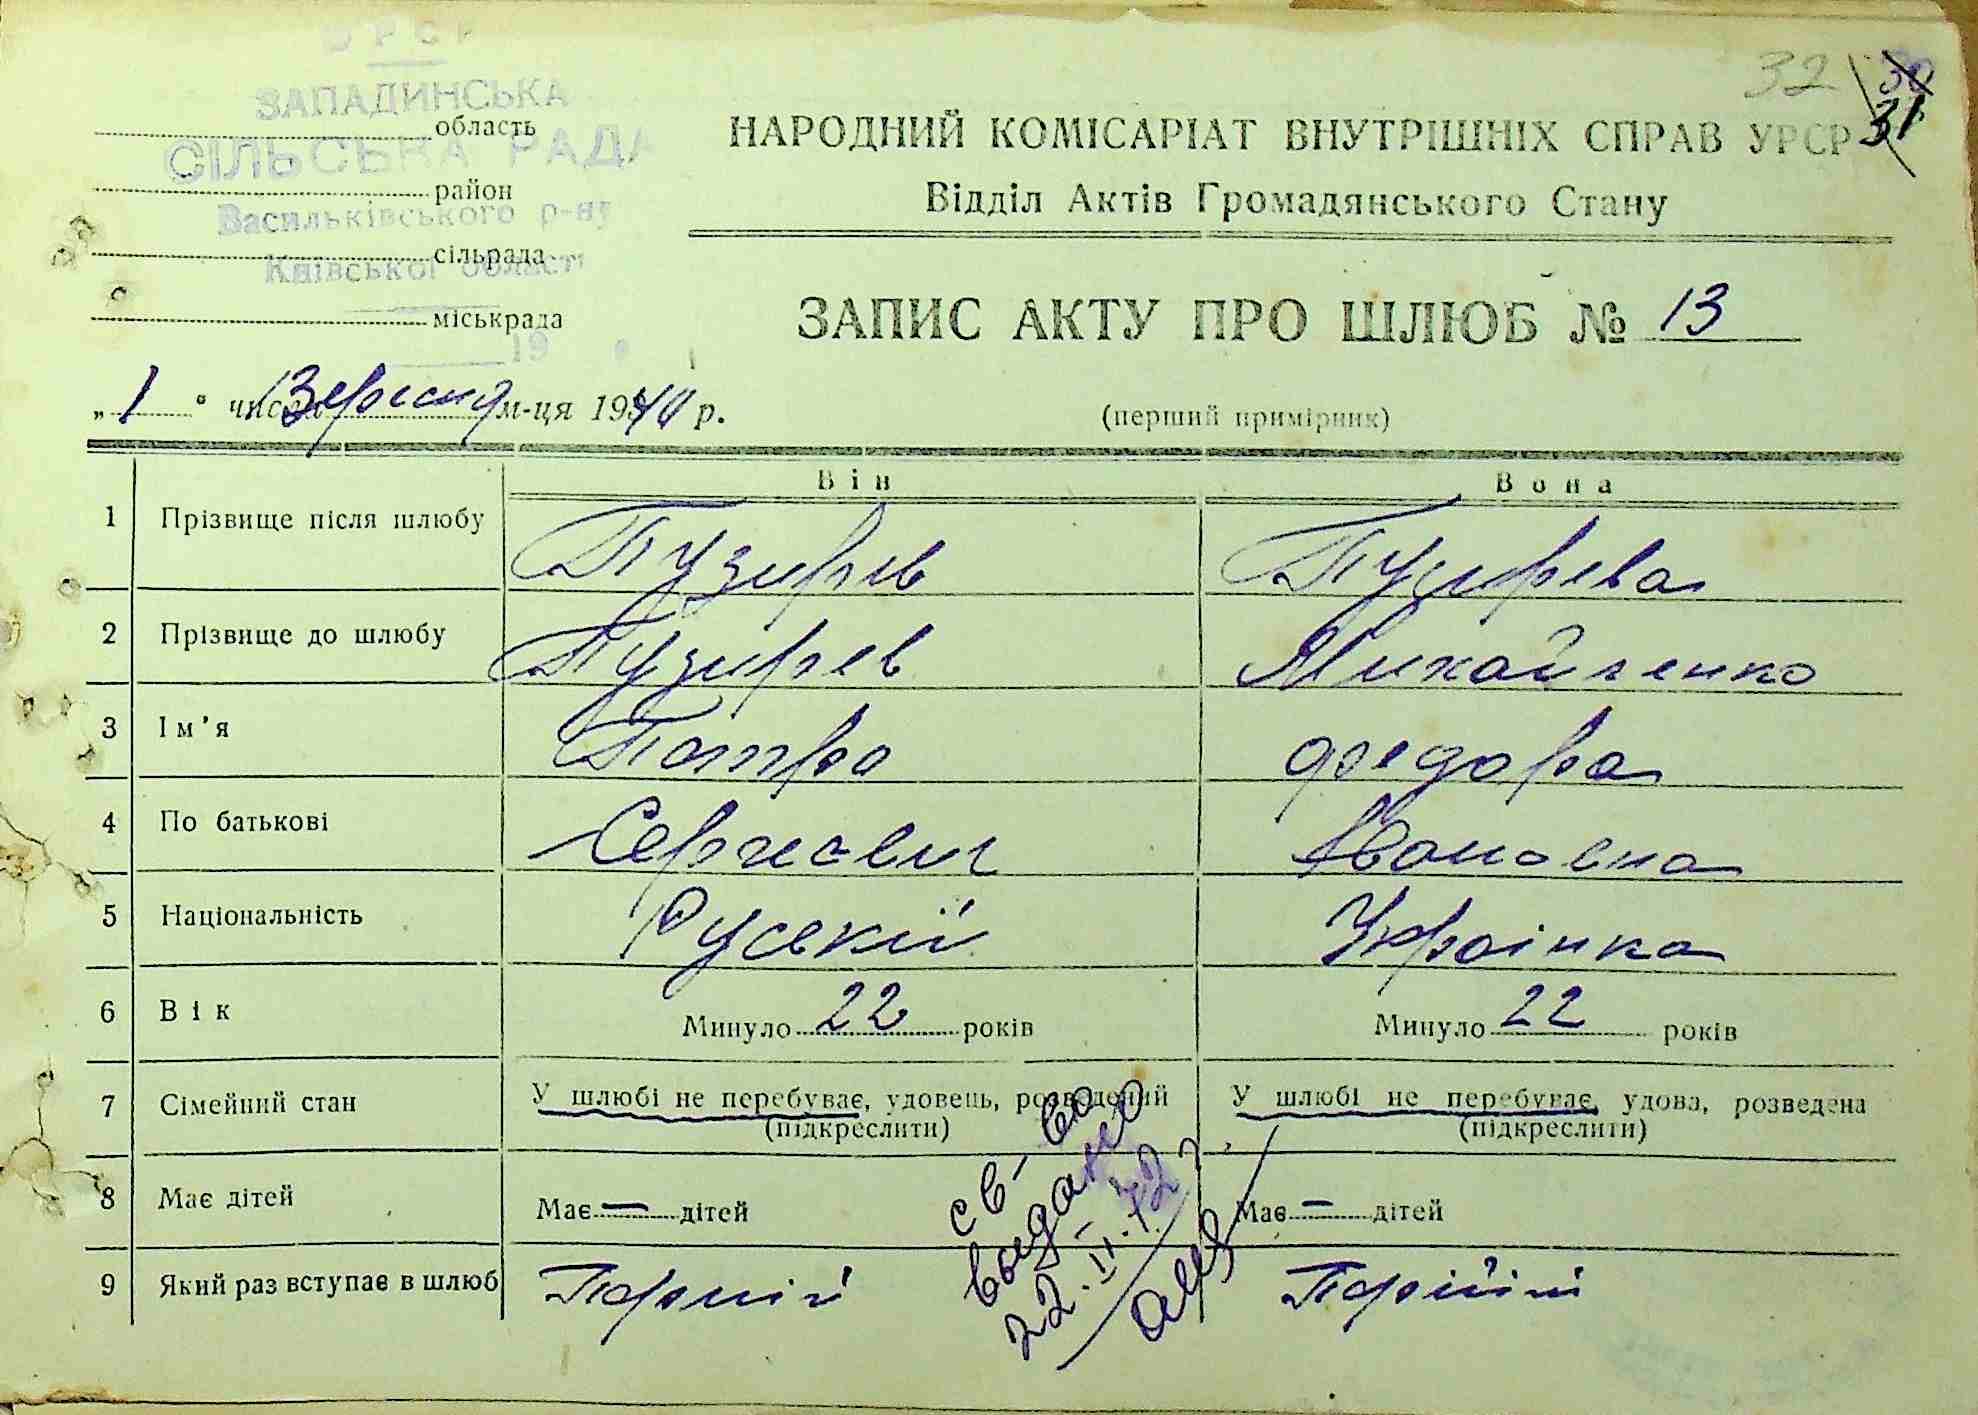 УРСР
ЗАПАДИНСЬКА
СІЛЬСЬКА РАДА
Васильківського р-ну
Київської області
19
область
район
сільрада
міськрада
32 30
31
НАРОДНИЙ КОМІСАРІАТ ВНУТРІШНІХ СПРАВ УРСР
Відділ Актів Громадянського Стану
ЗАПИС АКТУ ПРО ШЛЮБ № 13
„1" числа Вересня м-ця 1940 р.
(перший примірник)
Він Вона
1 Прізвище після шлюбу Пузирев Пузирева
2 Прізвище до шлюбу Пузирев Михайленко
3 Ім'я Петро Федора
4 По батькові Сергиевич Ивановна
5 Національність Руський Украінка
6 Вік Минуло 22 років Минуло 22 років
7 Сімейний стан У шлюбі не перебуває, удовець, розведений У шлюбі не перебуває, удова, розведена
(підкреслити) (підкреслити)
8 Має дітей Має — дітей Має — дітей
9 Який раз вступає в шлюб Перший Перший
св-во
выдано
22.II.